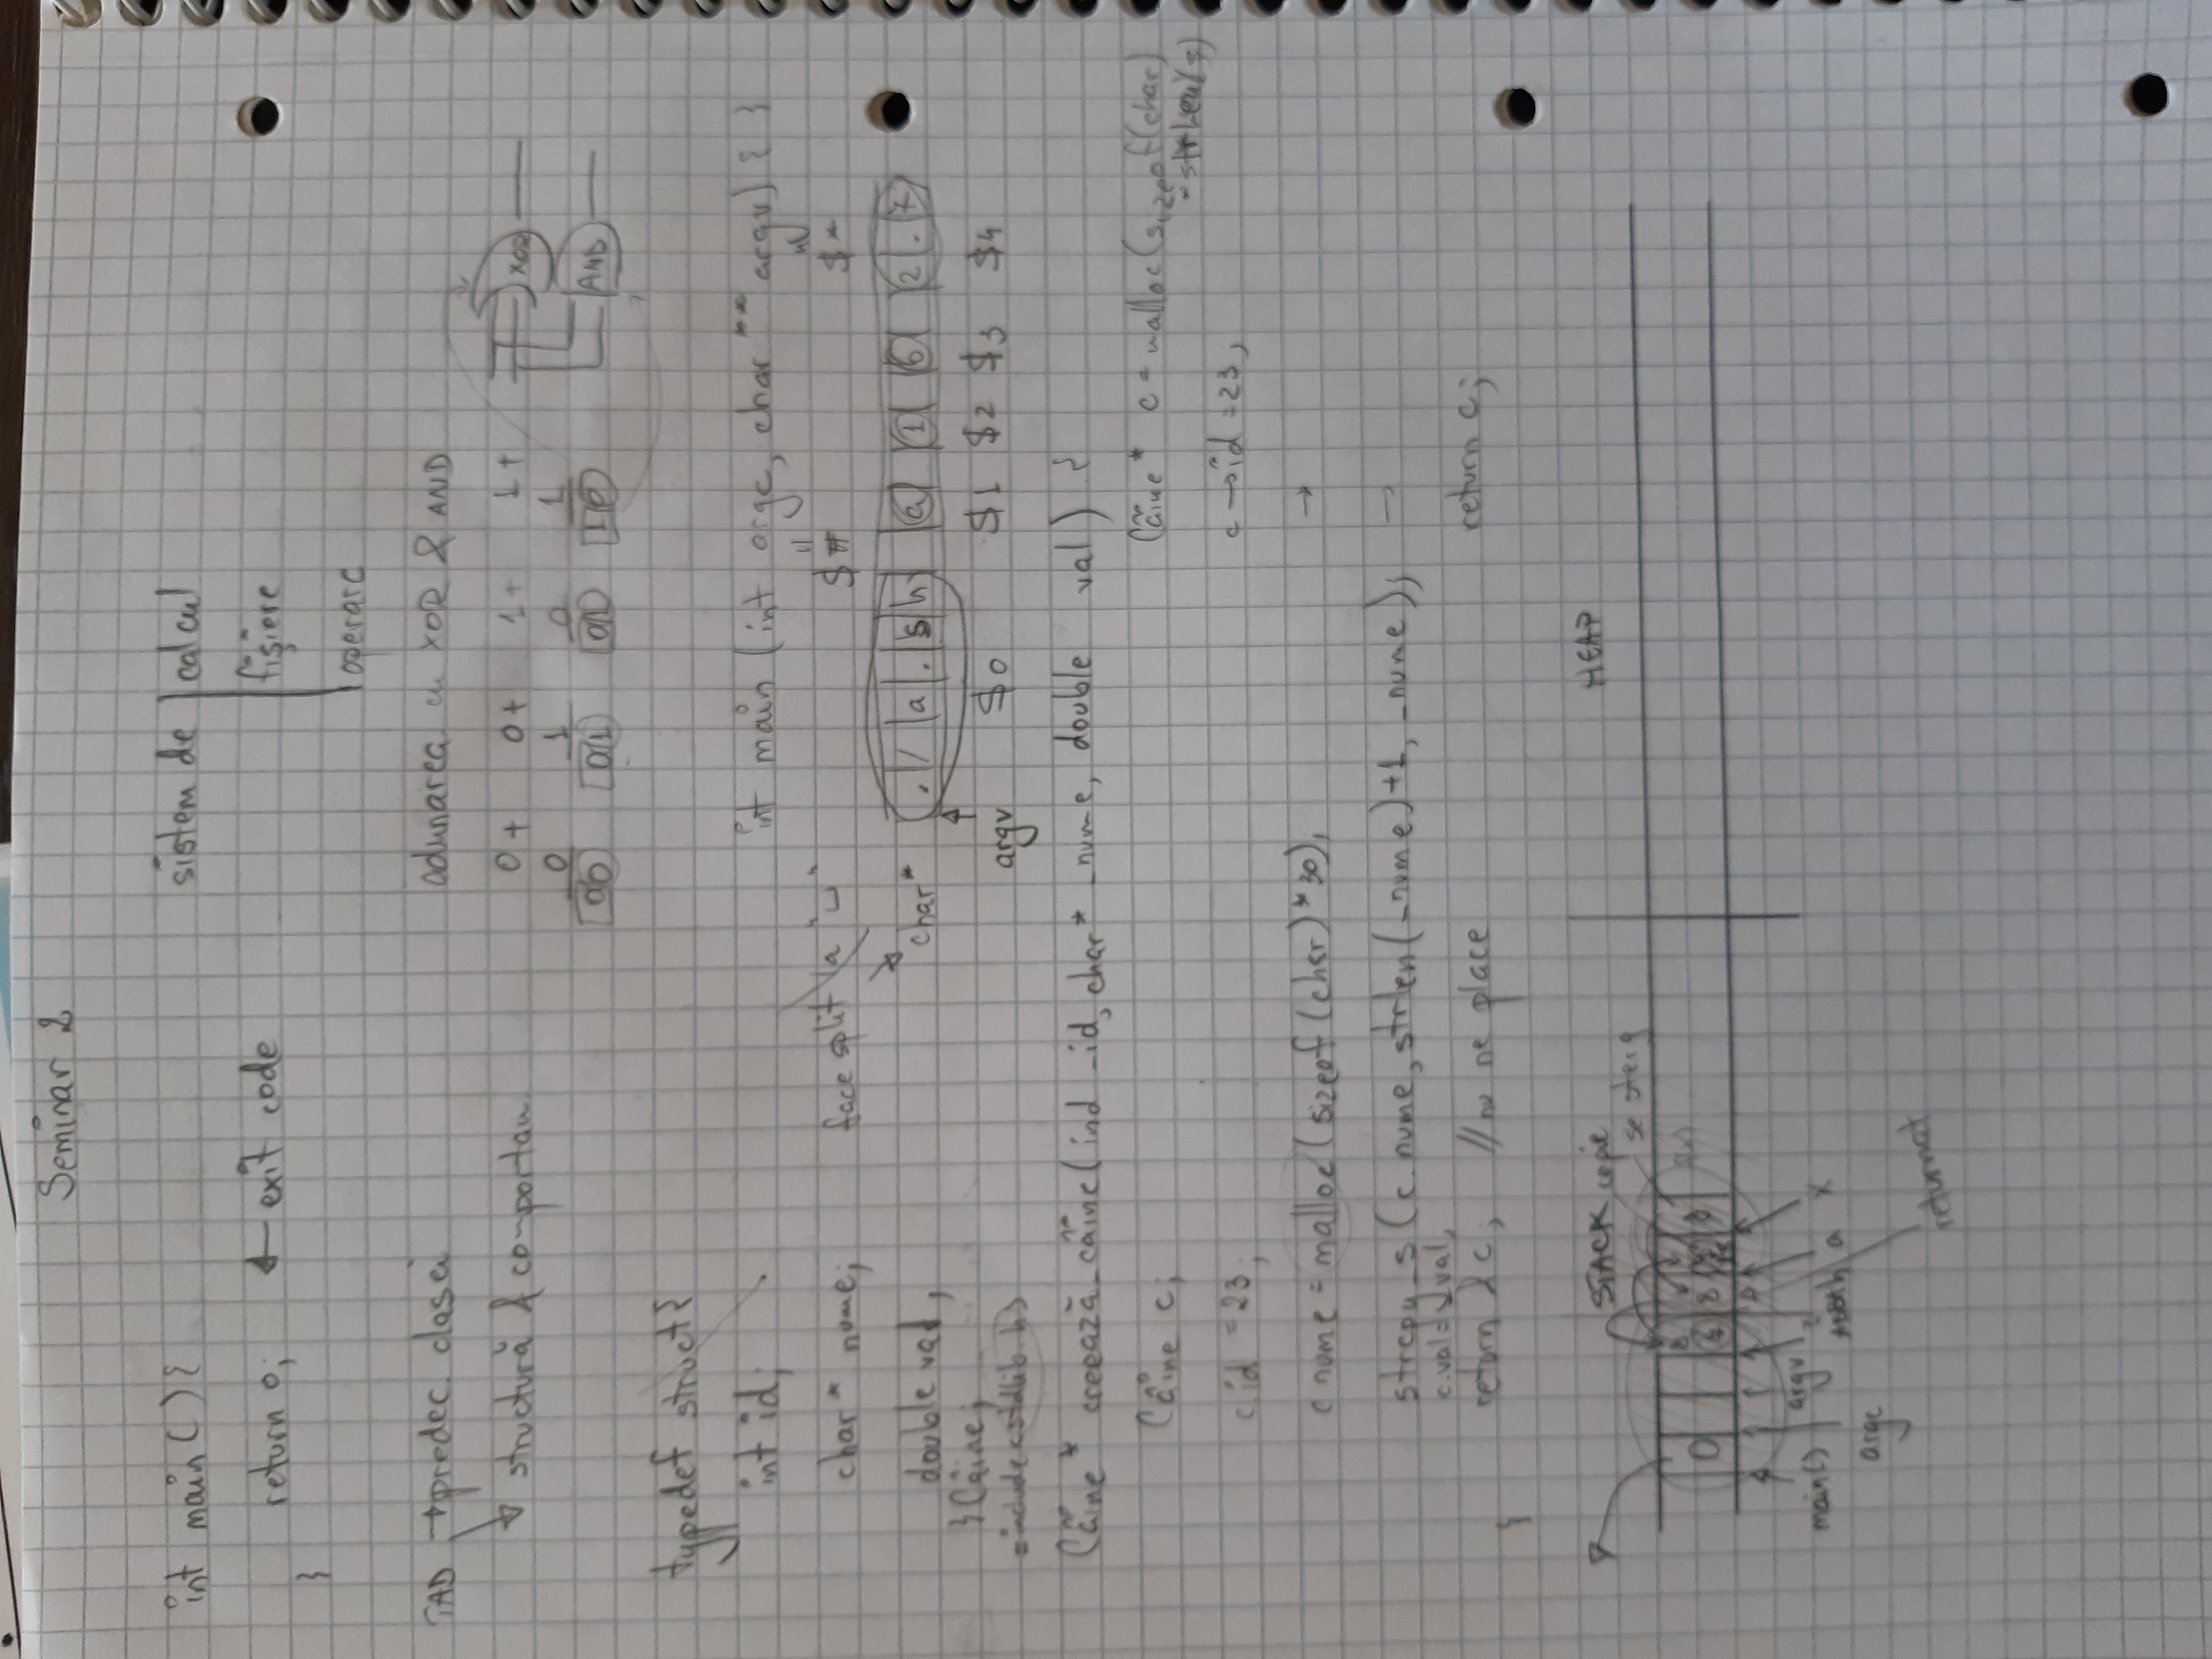 Seminar 2
int main() {
return 0; ← exit code
}
sistem de | calcul
fișiere
operare
TAD → predec. clasei
→ structură & comportam
adunarea cu XOR & AND
0+ 0+ 1+ 1+
0 1 0 1
00 01 01 10
XOR
AND
typedef struct {
int id;
char* nume;
double val;
} Câine;
int main (int argc, char** argv) { }
$# $*
face split la "␣"
char* ./a.sh a 1 6 2.7
argv $0 $1 $2 $3 $4
#include <stdlib.h>
Câine* creează_câine(ind _id, char* _nume, double val) {
Câine c;
c.id = 23;
c.nume = malloc(sizeof(char)*30);
strcpy_s(c.nume, strlen(_nume)+1, _nume);
c.val = val;
return &c; //nu ne place
}
Câine* c = malloc(sizeof(char)
strlen(s)
c→id = 23;
→
→
return c;
STACK copie HEAP
se șterg
0
main() argv a x
argc
returnat